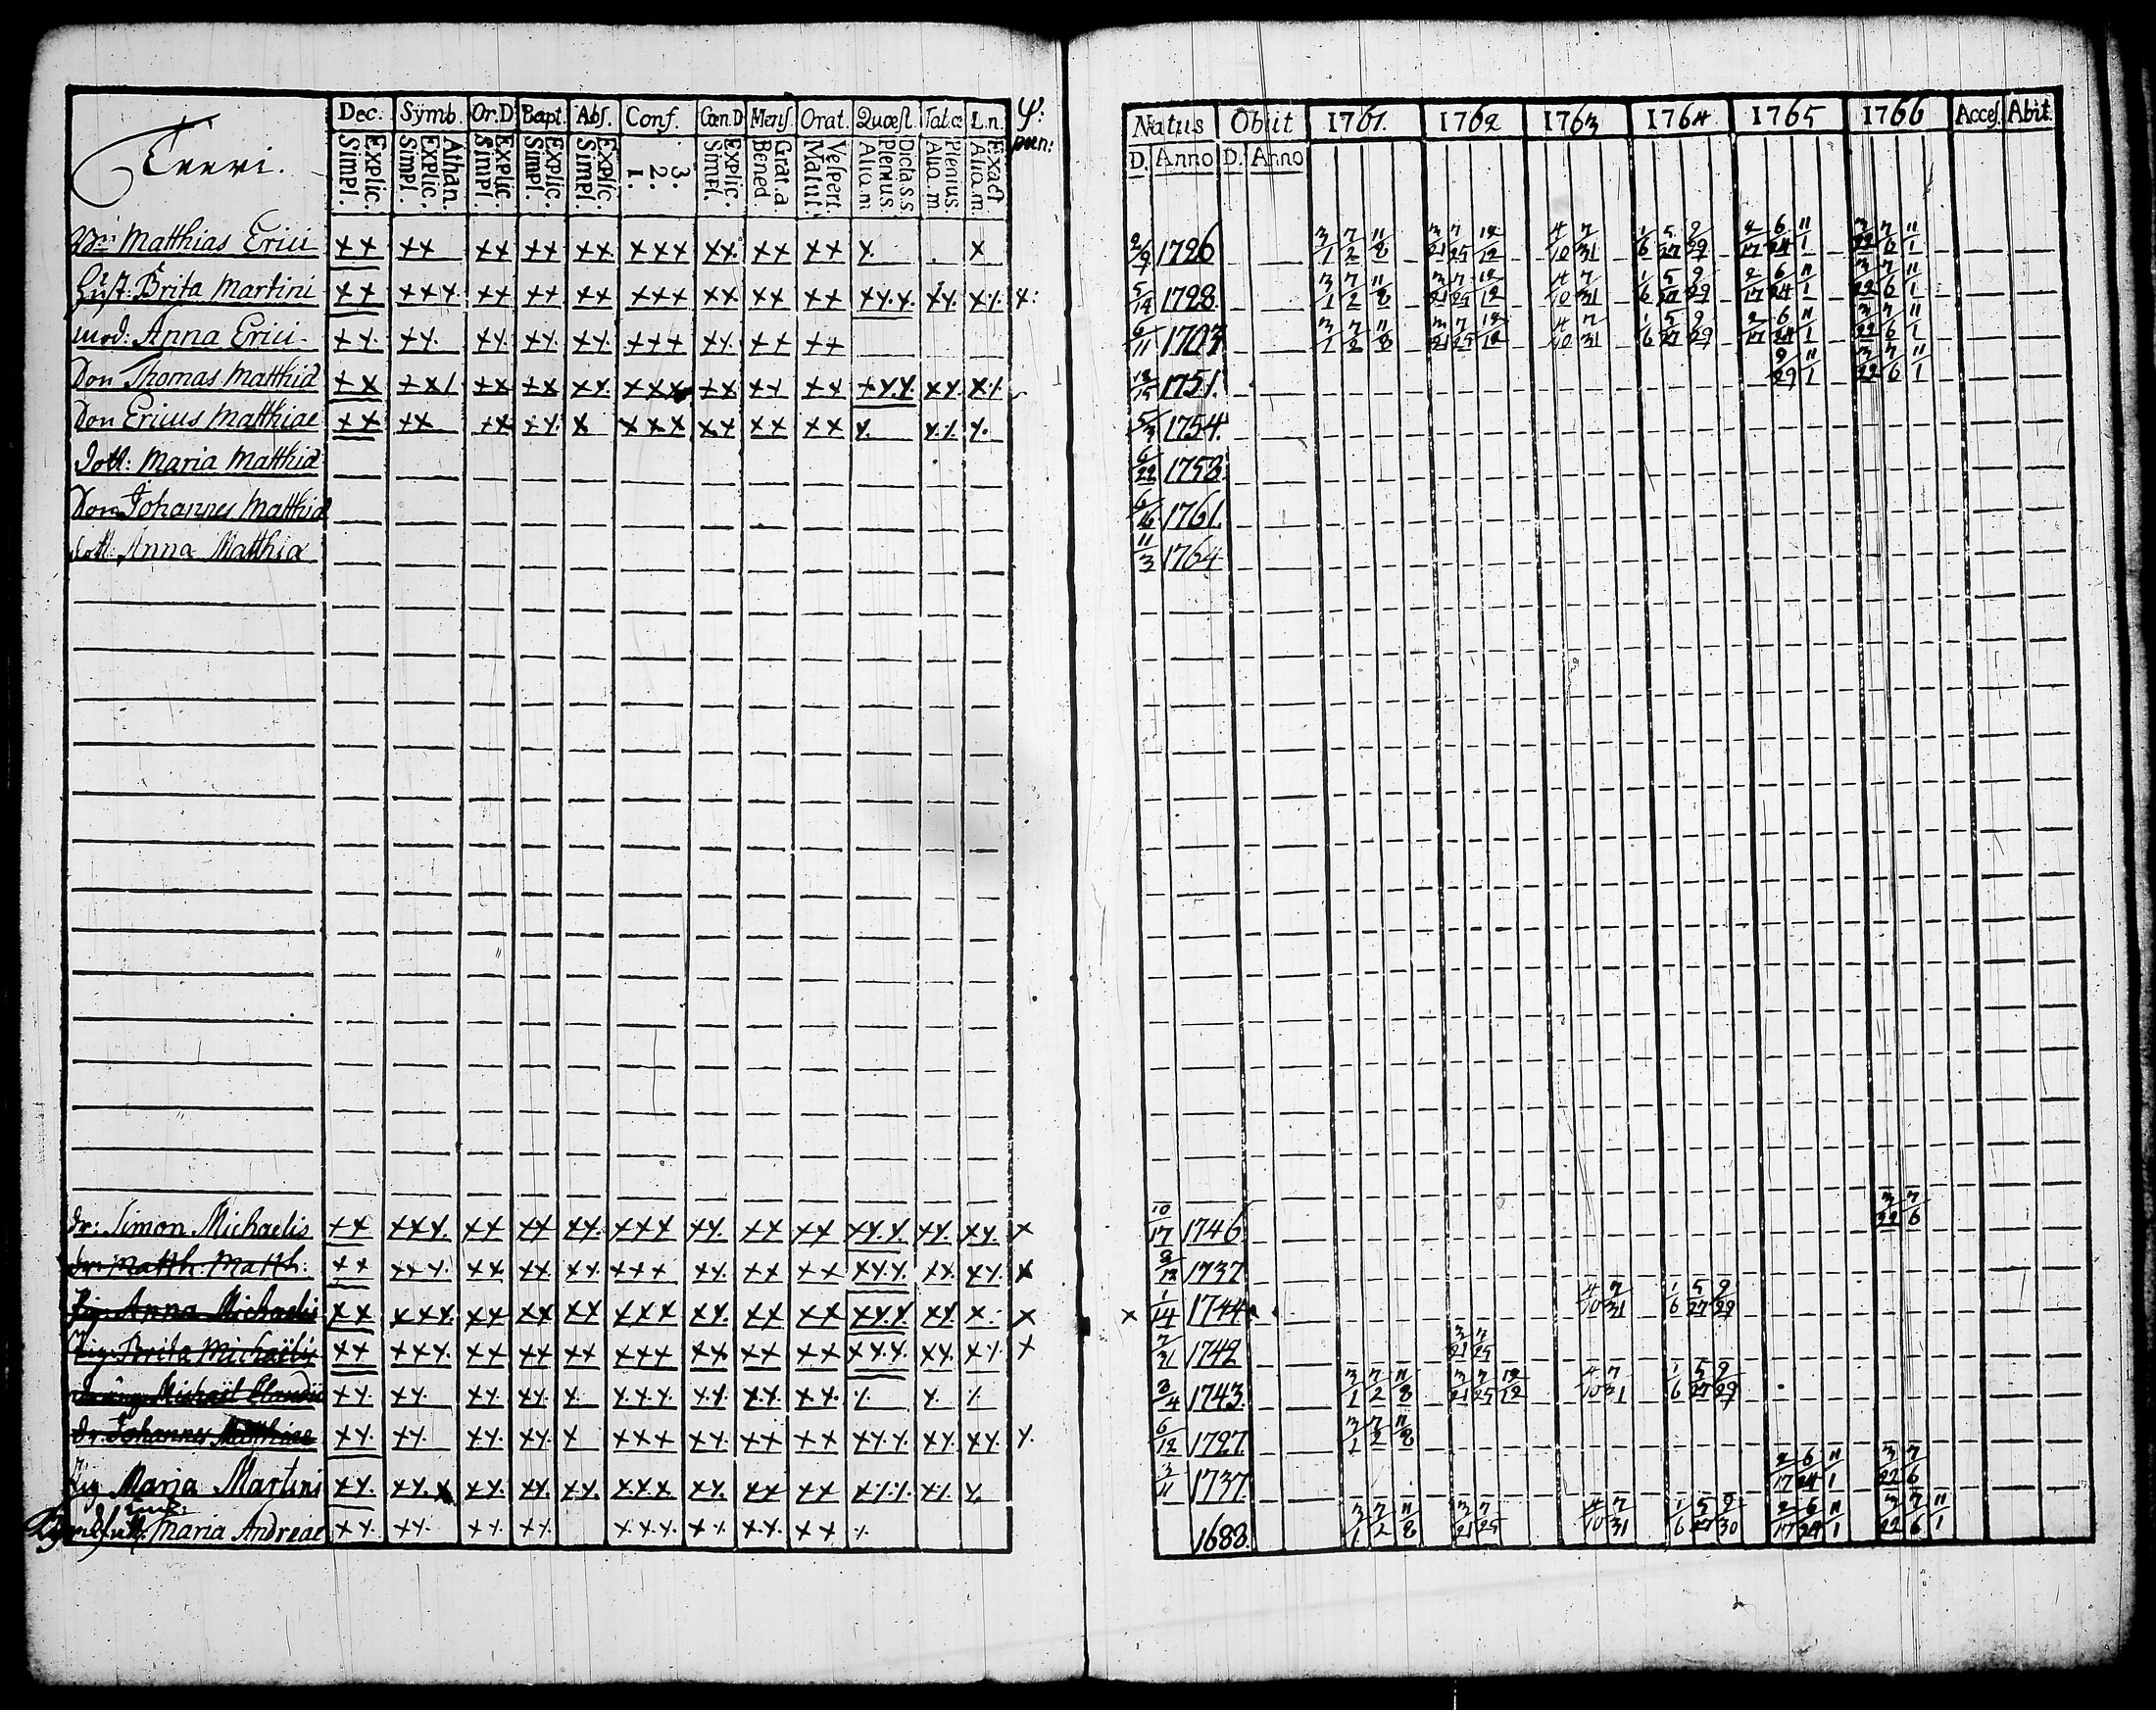 Dec: Symb. Or.D Bapt. Abs. Conf. Cœn.D Mens. Orat. Quæst. Tab.œ L.n. ψ:
Explic. Simpl. Athan. Explic. Simpl. Explic. Simpl. Explic. Simpl. Explic. Simpl. 3. 2. 1. Explic. Simpl. Grat.a Bened Vespert. Matut. Dicta s.s. Plenius Aliq.m Plenius. Aliq.m Exact Aliq.m. pœn:
Matthias Erici ×× ×× ×× ×× ×× ××× ×× ×× ×× × ×
Hust. Brita Martini ×× ××× ×× ×× ×× ××× ×× ×× ×× ××× ×× ×× ×:
mod: Anna Erici ×× ×× ×× ×× ×× ××× ×× ×× ××
Son Thomas Matthiæ ×× ××× ×× ×× ×× ××× ×× ×× ×× ××× ×× ××
Son Ericus Matthiae ×× ×× ×× ×× × ××× ×× ×× ×× × ×× ×
dott: Maria Matthiæ
Son Johannes Matthiæ
dott: Anna Matthiæ
dr: Simon Michaelis ×× ××× ×× ×× ×× ××× ×× ×× ×× ××× ×× ×× ×
dr: Matth. Matth: ×× ××× ×× ×× ×× ××× ×× ×× ×× ××× ×× ×× ×
Pig: Anna Michaelis ×× ××× ×× ×× ×× ××× ×× ×× ×× ××× ×× × ×
Pig: Brita Michaëlis ×× ××× ×× ×× ×× ××× ×× ×× ×× ××× ×× ×× ×
Michaël Claudii ×× ×× ×× ×× × ××× ×× ×× ×× × × ×
dr: Johannes Matthiae ×× ×× ×× ×× × ××× ×× ×× ×× ××× ×× ×× ×
Pig Maria Martini ×× ×× ×× ×× ×× ××× ×× ×× ×× ××× ×× ×
Maria Andreae ×× ×× ×× ×× ××× ×× ×× ×× ×
Natus Obiit 1761. 1762 1763 1764 1765 1766 Acces. Abit.
D. Anno D. Anno
2/9 1726 3/1 7/2 11/8 3/21 7/25 12/12 4/10 7/31 1/6 5/27 9/29 2/17 6/24 11/1 3/22 7/6 11/1
5/14 1728 3/1 7/2 11/8 3/21 7/25 12/12 4/10 7/31 1/6 5/27 9/29 2/17 6/24 11/1 3/22 7/6 11/1
6/11 1703 3/1 7/2 11/8 3/21 7/25 12/12 4/10 7/31 1/6 5/27 9/29 2/17 6/24 11/1 3/22 7/6 11/1
12/15 1751. 9/29 11/1 3/22 7/6 11/1
5/3 1754.
6/22 1758
6/16 1761.
11/3 1764
10/17 1746 3/22 7/6
8/12 1737
× 1/14 1744 4/10 7/31 1/6 5/27 9/29
7/31 1742 3/21 7/25
3/4 1743. 3/1 7/2 11/8 3/21 7/25 12/12 4/10 7/31 1/6 5/27 9/29
6/12 1727. 3/1 7/2 11/8
3/11 1737. 2/17 6/24 11/1 3/22 7/6
1688. 3/1 7/2 11/8 3/21 7/25 4/10 7/31 1/6 5/27 9/30 2/17 6/24 11/1 3/22 7/6 11/1